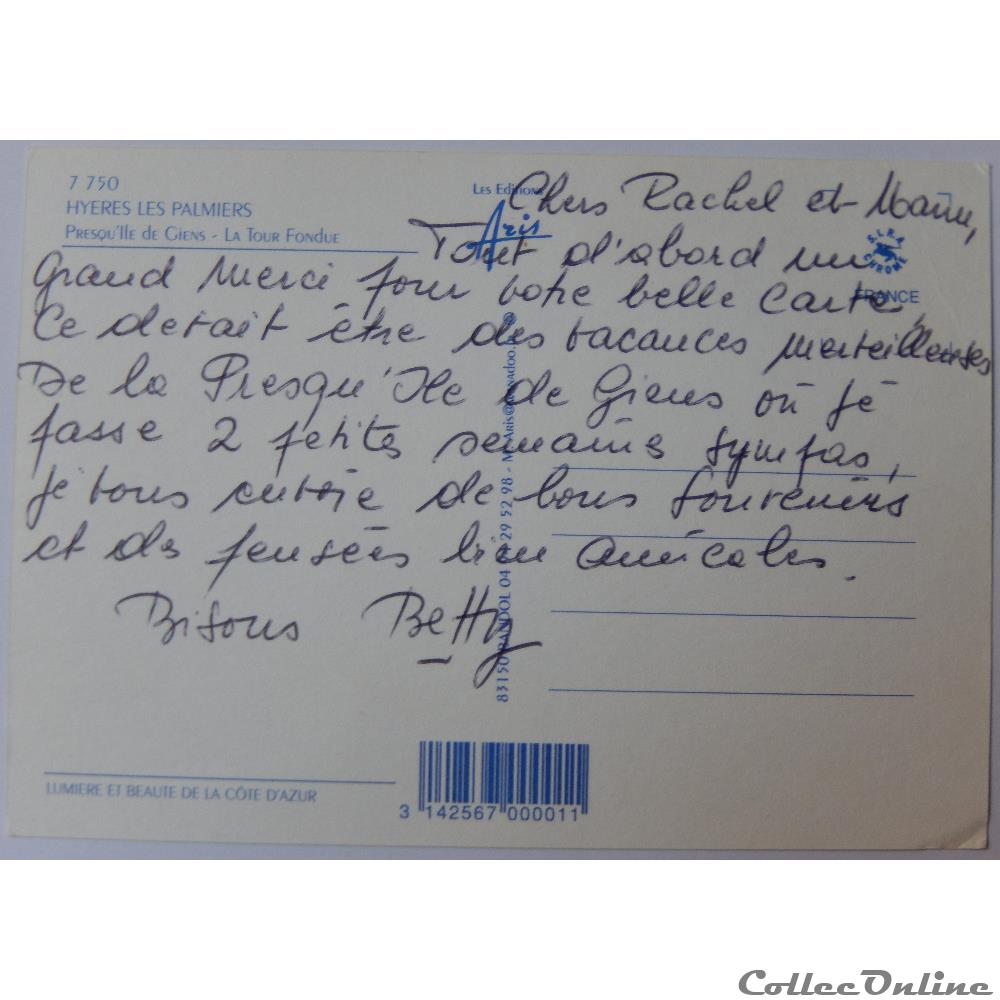 7 750
HYERES LES PALMIERS
PRESQU'ILE DE GIENS - LA TOUR FONDUE
LES EDITIONS
Aris
Chers Rachel et
Tout d'abord un
Grand Merci pour votre belle Carte,
Ce devait être des vacances merveilleuses
De la Presqu'Ile de Giens où je
passe 2 petites semaines sympas,
je vous envoie de bons souvenirs
et des pensées bien amicales.
Bisous Betty
FRANCE
CHROME
83150 BANDOL 04 29 52 98
LUMIERE ET BEAUTE DE LA CÔTE D'AZUR
3 142567 000011
CollecOnline